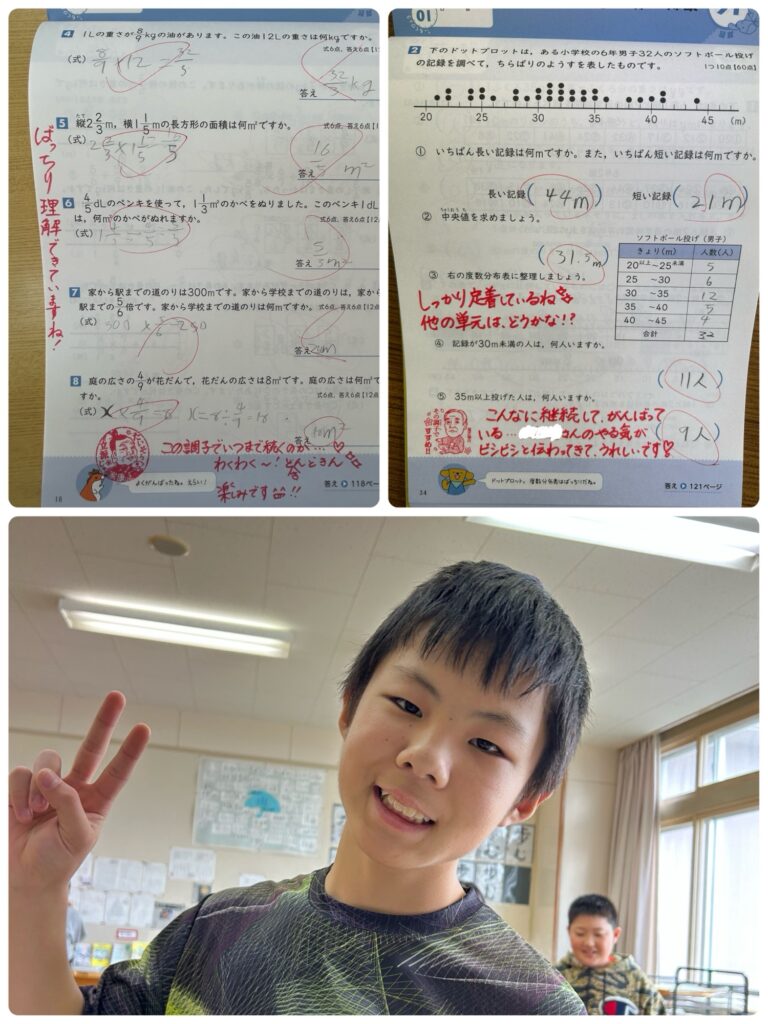 4 1Lの重さが8/9kgの油があります。この油12Lの重さは何kgですか。
式6点、答え6点【12
(式) 8/9 × 12 = 32/3
答え 32/3 kg
5 縦2 2/3m，横1 1/5mの長方形の面積は何m²ですか。
式6点、答え6点【12
(式)
16/5 m²
6 4/5dLのペンキを使って，1 1/3m²のかべをぬりました。このペンキ1dL
は，何m²のかべがぬれますか。
式6点、答え6点【12
(式)
7 家から駅までの道のりは300mです。家から学校までの道のりは，家から
駅までの5/6倍です。家から学校までの道のりは何mですか。
式6点、答え6点【12
(式) 300 × 5/6 = 250
答え
8 庭の広さの4/9が花だんで，花だんの広さは8m²です。庭の広さは何m²で
すか。
式6点、答え6点【12
(式) x × 4/9 = 8 x = 8 ÷ 4/9 = 18
答え 18m²
ばっちり理解できていますね!
この調子でいつまで続くのか…♡
わくわく〜!どんどん
楽しみです!!
よくがんばったね。えらい!
答え▶118ページ
18
01
2 下のドットプロットは，ある小学校の6年男子32人のソフトボール投げ
の記録を調べて，ちらばりのようすを表したものです。
1つ10点【60点】
20 25 30 35 40 45 (m)
① いちばん長い記録は何mですか。また，いちばん短い記録は何mですか。
長い記録(44m) 短い記録(21m)
② 中央値を求めましょう。
(31.5m)
③ 右の度数分布表に整理しましょう。
ソフトボール投げ(男子)
きょり(m) 人数(人)
20以上〜25未満 5
25 〜30 6
30 〜35 12
35 〜40 5
40 〜45 4
合計 32
しっかり定着しているね
他の単元は、どうかな!?
④ 記録が30m未満の人は，何人いますか。
(11人)
⑤ 35m以上投げた人は，何人いますか。
(9人)
こんなに継続して、がんばって
いる…さんのやる気が
ビシビシと伝わってきて、うれしいです♡
ドットプロット，度数分布表はばっちりだね。
答え▶121ページ
34
歩む